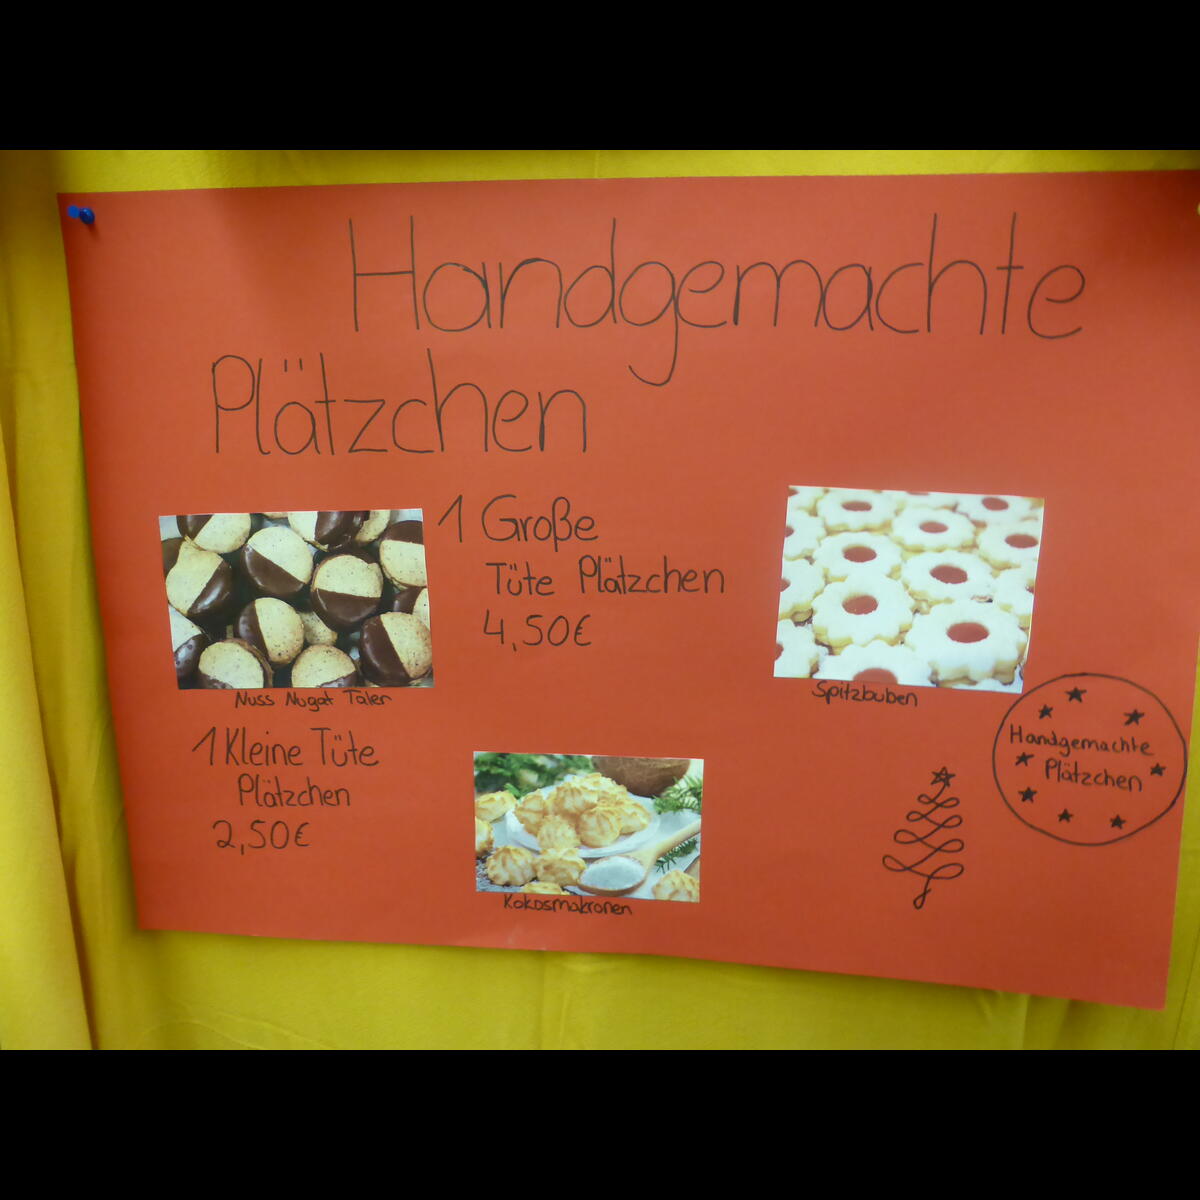 Handgemachte
Plätzchen
1 Große
Tüte Plätzchen
4,50€
Nuss Nugat Taler
Spitzbuben
1 Kleine Tüte
Plätzchen
2,50€
Kokosmakronen
Handgemachte
Plätzchen